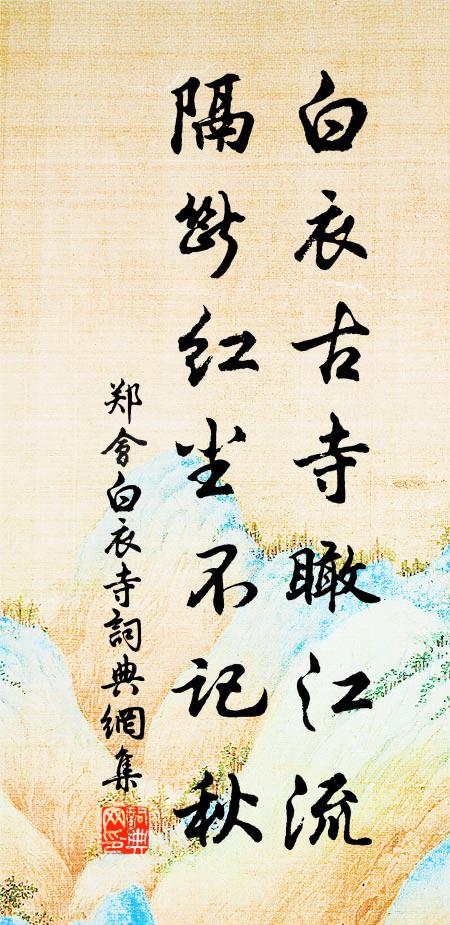 白衣古寺瞰江流
隔断红尘不记秋
郑會白衣寺詞典網集
詞典网印